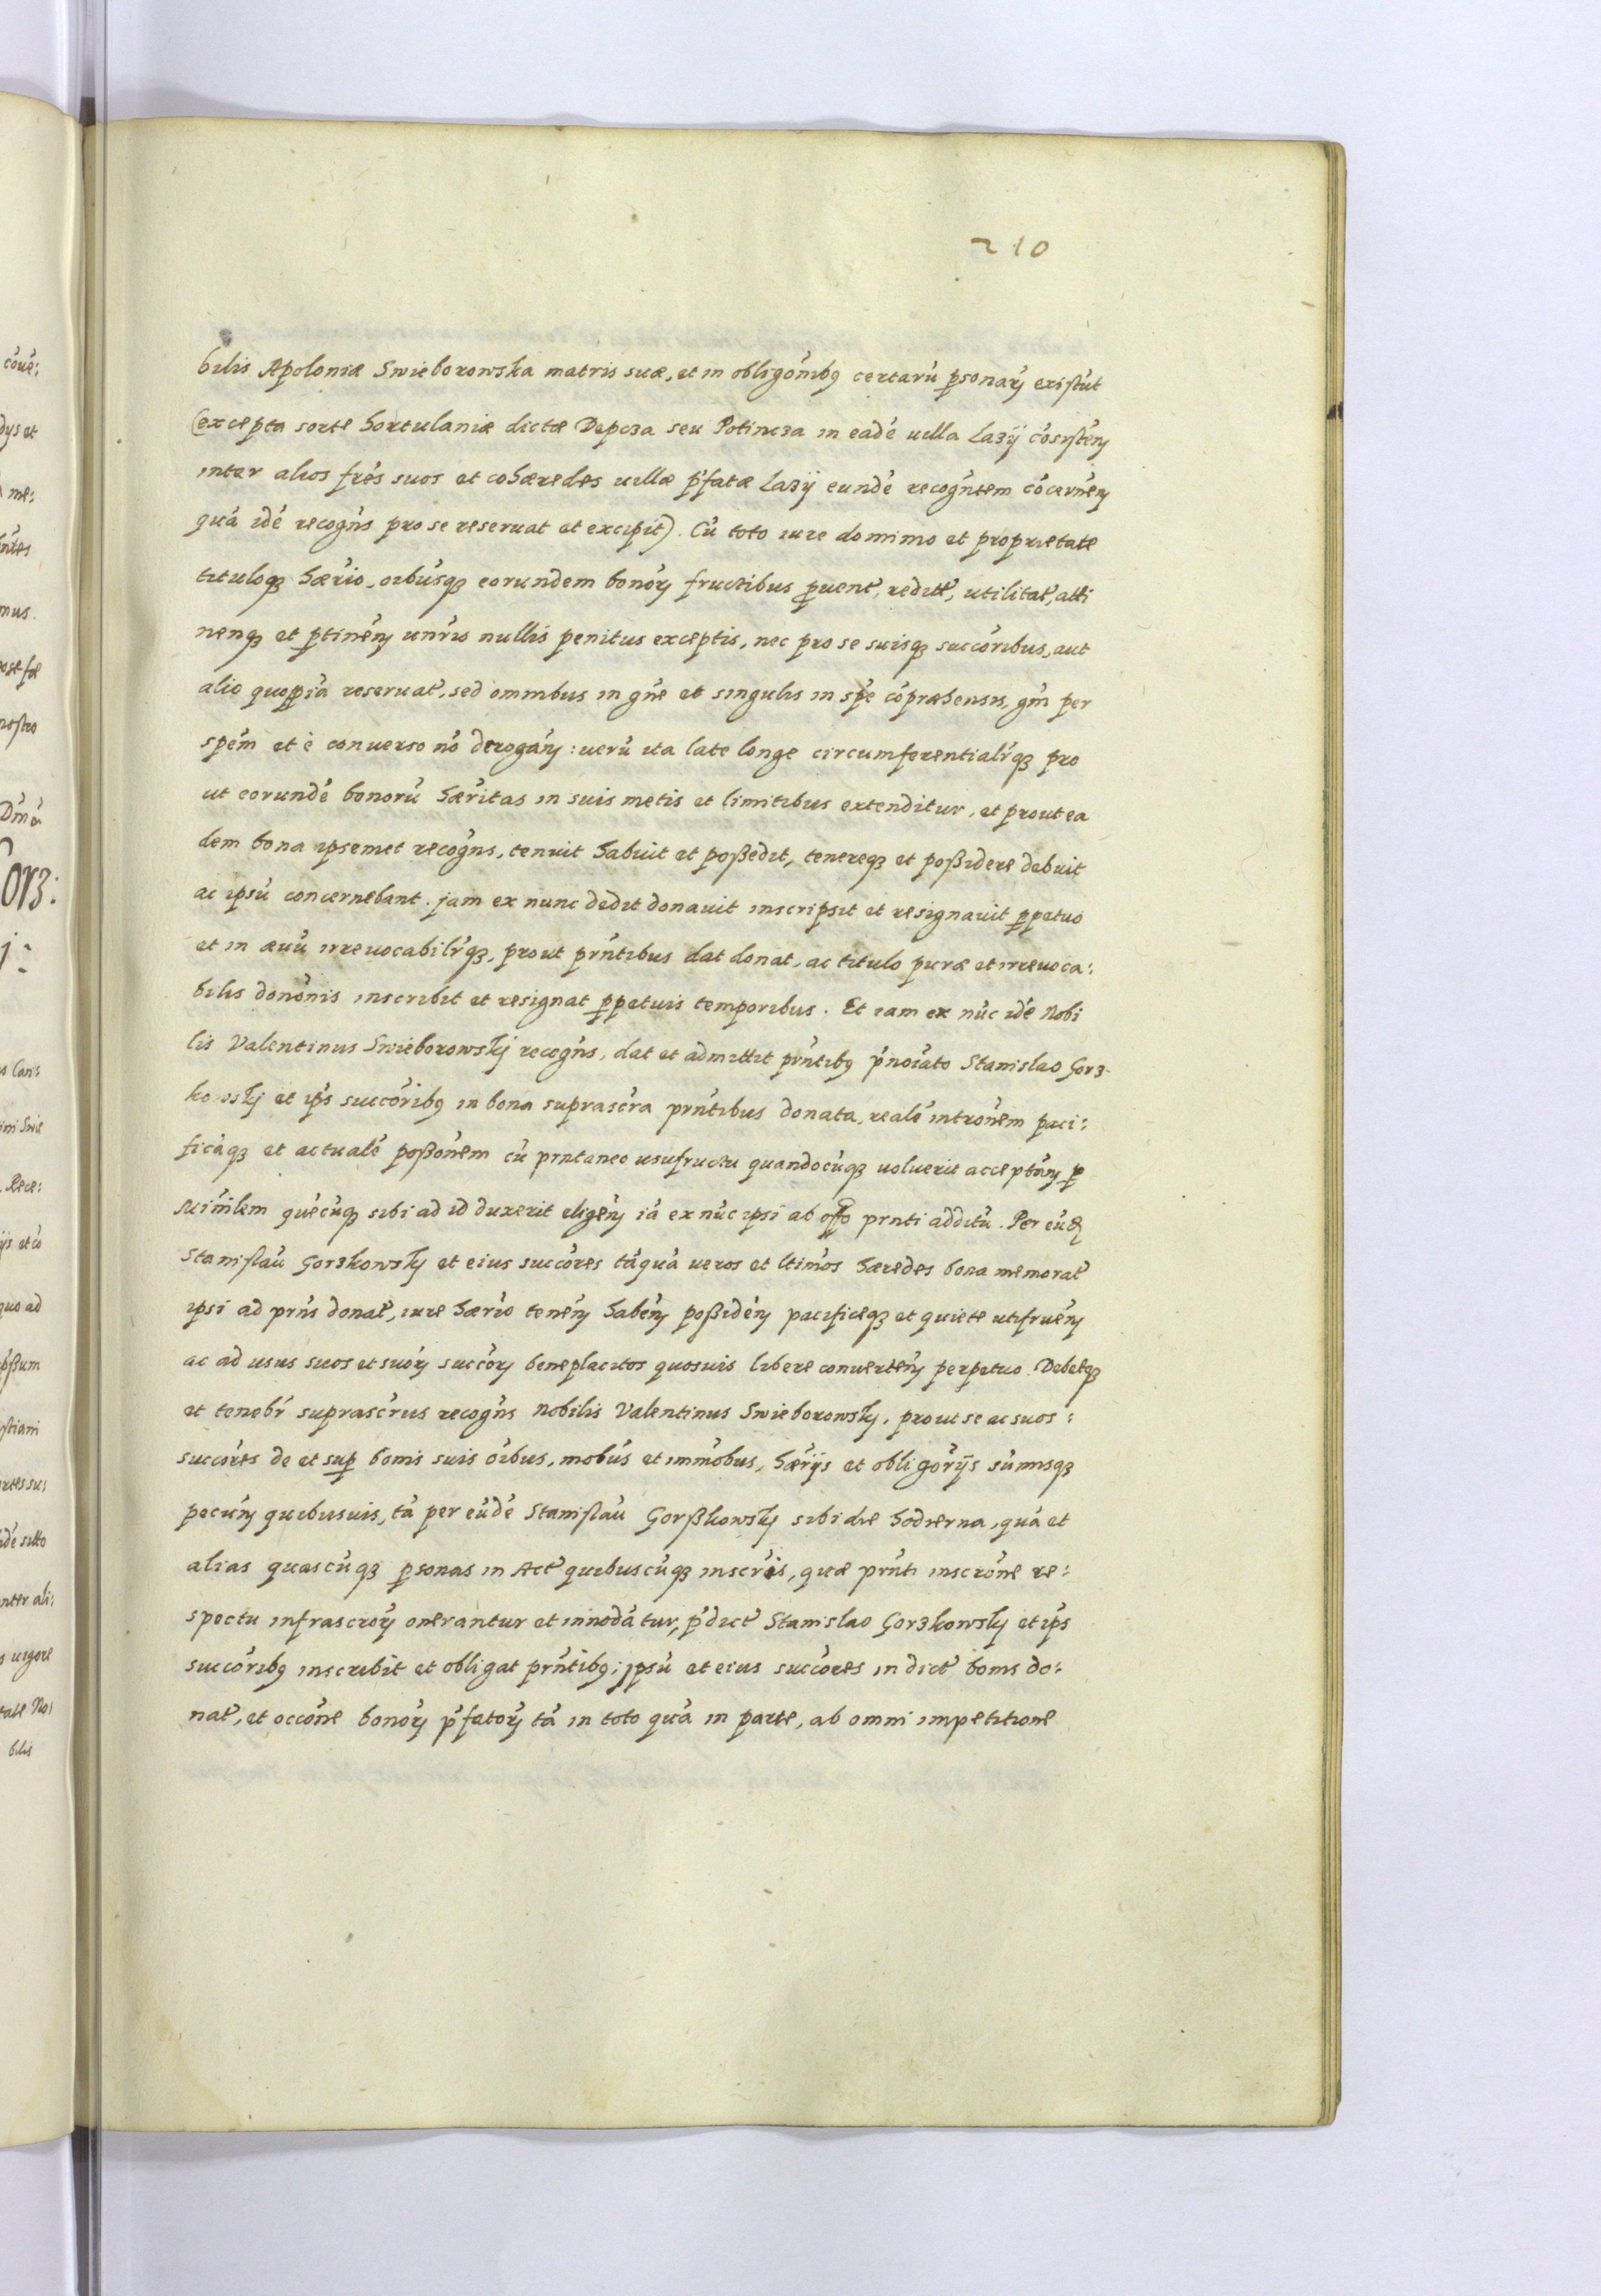 210
bilis Apoloniæ Swieborowska matris suæ, et in obligo͂nibꝰ certarũ ꝑsonarꝝ existũt
(excepta sorte hortulaniæ dictæ Depcza seu Potincza in eadẽ uilla Lazÿ cõsisteñ
inter alios fr̃es suos et cohæredes uillæ p̃fatæ Lazÿ eundẽ recogñtem cõcerneñ
quã idẽ recogñs pro se reseruat et excipit). Cũ toto iure dominio et proprietate
tituloqꝫ hær̃io, oĩbusqꝫ eorundem bonoꝝ fructibus ꝓuent̃, reditt̃, utilitat̃, atti
nenqꝫ et ꝑtineñ unĩus nullis penitus exceptis, nec pro se suisqꝫ succor̃ibus, aut
alio quopiã reseruat̃, sed omnibus in gñe et singulis in sp̃e cõpræhensis, gñi per
spẽm et è conuerso nõ derogañ: uerũ ita late longe circumferentialr̃qꝫ pro
ut eorundẽ bonorũ hær̃itas in suis metis et limitibus extenditur, et prout ea
dem bona ipsemet recogñs, tenuit habuit et poßedit, tenereqꝫ et poßidere debuit
ac ipsũ concernebant. jam ex nunc dedit donauit inscripsit et resignauit ꝑpetuo
et in æuũ irreuocabilr̃qꝫ, prout prñtibus dat donat, ac titulo puræ et irreuoca:
bilis donõnis inscribit et resignat ꝑpetuis temporibus. Et iam ex nũc idẽ Nobi
lis Valentinus Swieborowskÿ recogñs, dat et admittit prñtibꝰ p̃noĩato Stanislao Gorz-
kowskÿ et ip̃s succor̃ibꝰ in bona suprascr̃a prñtibus donata, realẽ intronẽm paci:
ficãqꝫ et actualẽ poßonẽm cũ prñtaneo usufructu quandocũqꝫ uoluerit acceptañ ꝑ
Mĩnlem quẽcũqꝫ sibi ad id duxerit eligeñ iã ex nũc ipsi ab offo prñti additũ. Per eũd
Stanislaũ Gorzkowskÿ et eius succor̃es tãquã ueros et ltimõs hæredes bona memorat̃
ipsi ad prñs donat̃, iure hær̃io teneñ habeñ poßideñ pacificeqꝫ et quiete utifrueñ
ac ad usus suos et suoꝝ succor̃ꝝ beneplacitos quosuis libere conuerteñ perpetuo. Debetqꝫ
et tenebr̃ suprascr̃us recogñs Nobilis Valentinus Swieborowskÿ, prout se ac suos:
succor̃es de et suꝑ bonis suis oĩbus, mobũs et immõbus, hær̃ijs et obligor̃ijs sũmisqꝫ
pecuñ quibusuis, tã per eũdẽ Stanislaũ Gorßkowskÿ sibi die hodierna, quã et
alias quascũqꝫ ꝑsonas in Act̃ quibuscũqꝫ inscr̃is, quæ prñti inscrõne re:
spectu infrascroꝝ onerantur et innodãtur, p̃dict̃ Stanislao Gorzkowskÿ et ip̃s
succor̃ibꝰ inscribit et obligat prñtibꝰ; jpsũ et eius succor̃es in dict̃ bonis do:
nat̃, et occõne bonoꝝ p̃fatoꝝ tã in toto quã in parte, ab omni impetitione